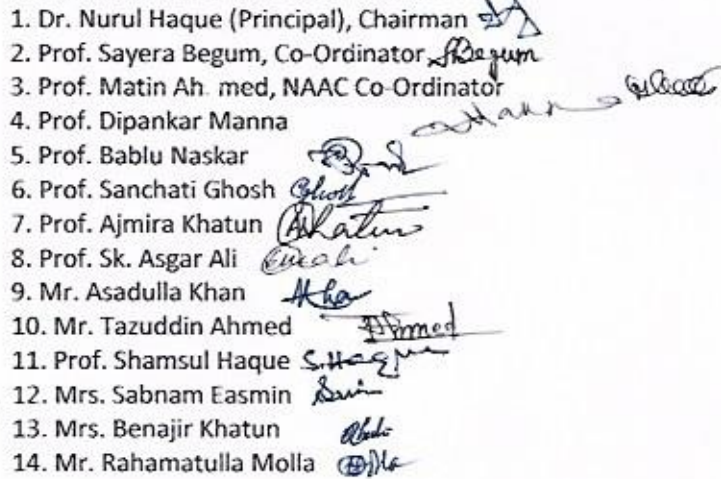 1. Dr. Nurul Haque (Principal), Chairman
2. Prof. Sayera Begum, Co-Ordinator SBegum
3. Prof. Matin Ah med, NAAC Co-Ordinator
4. Prof. Dipankar Manna
5. Prof. Bablu Naskar
6. Prof. Sanchati Ghosh
7. Prof. Ajmira Khatun Khatun
8. Prof. Sk. Asgar Ali
9. Mr. Asadulla Khan
10. Mr. Tazuddin Ahmed Ahmed
11. Prof. Shamsul Haque S.Haque
12. Mrs. Sabnam Easmin
13. Mrs. Benajir Khatun
14. Mr. Rahamatulla Molla